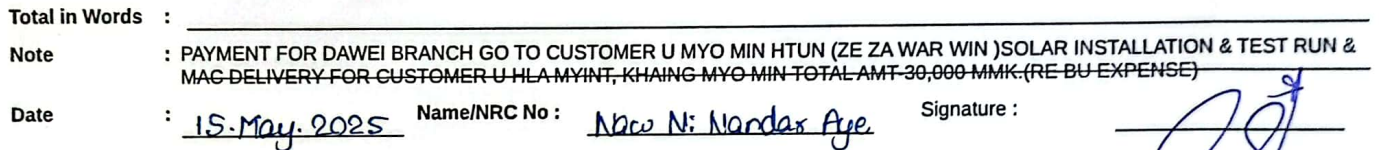 Total in Words :
Note : PAYMENT FOR DAWEI BRANCH GO TO CUSTOMER U MYO MIN HTUN (ZE ZA WAR WIN )SOLAR INSTALLATION & TEST RUN &
MAC DELIVERY FOR CUSTOMER U HLA MYINT, KHAING MYO MIN TOTAL AMT-30,000 MMK.(RE BU EXPENSE)
Date : 15.May.2025 Name/NRC No : Naw Ni Nandar Aye Signature :